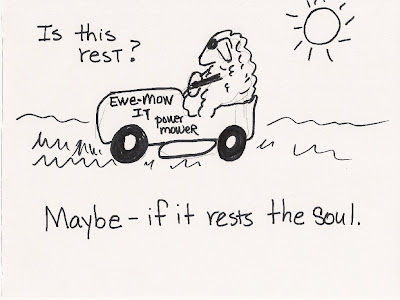 Is this
rest?
Ewe-Mow
IT
power
mower
Maybe - if it rests the soul.